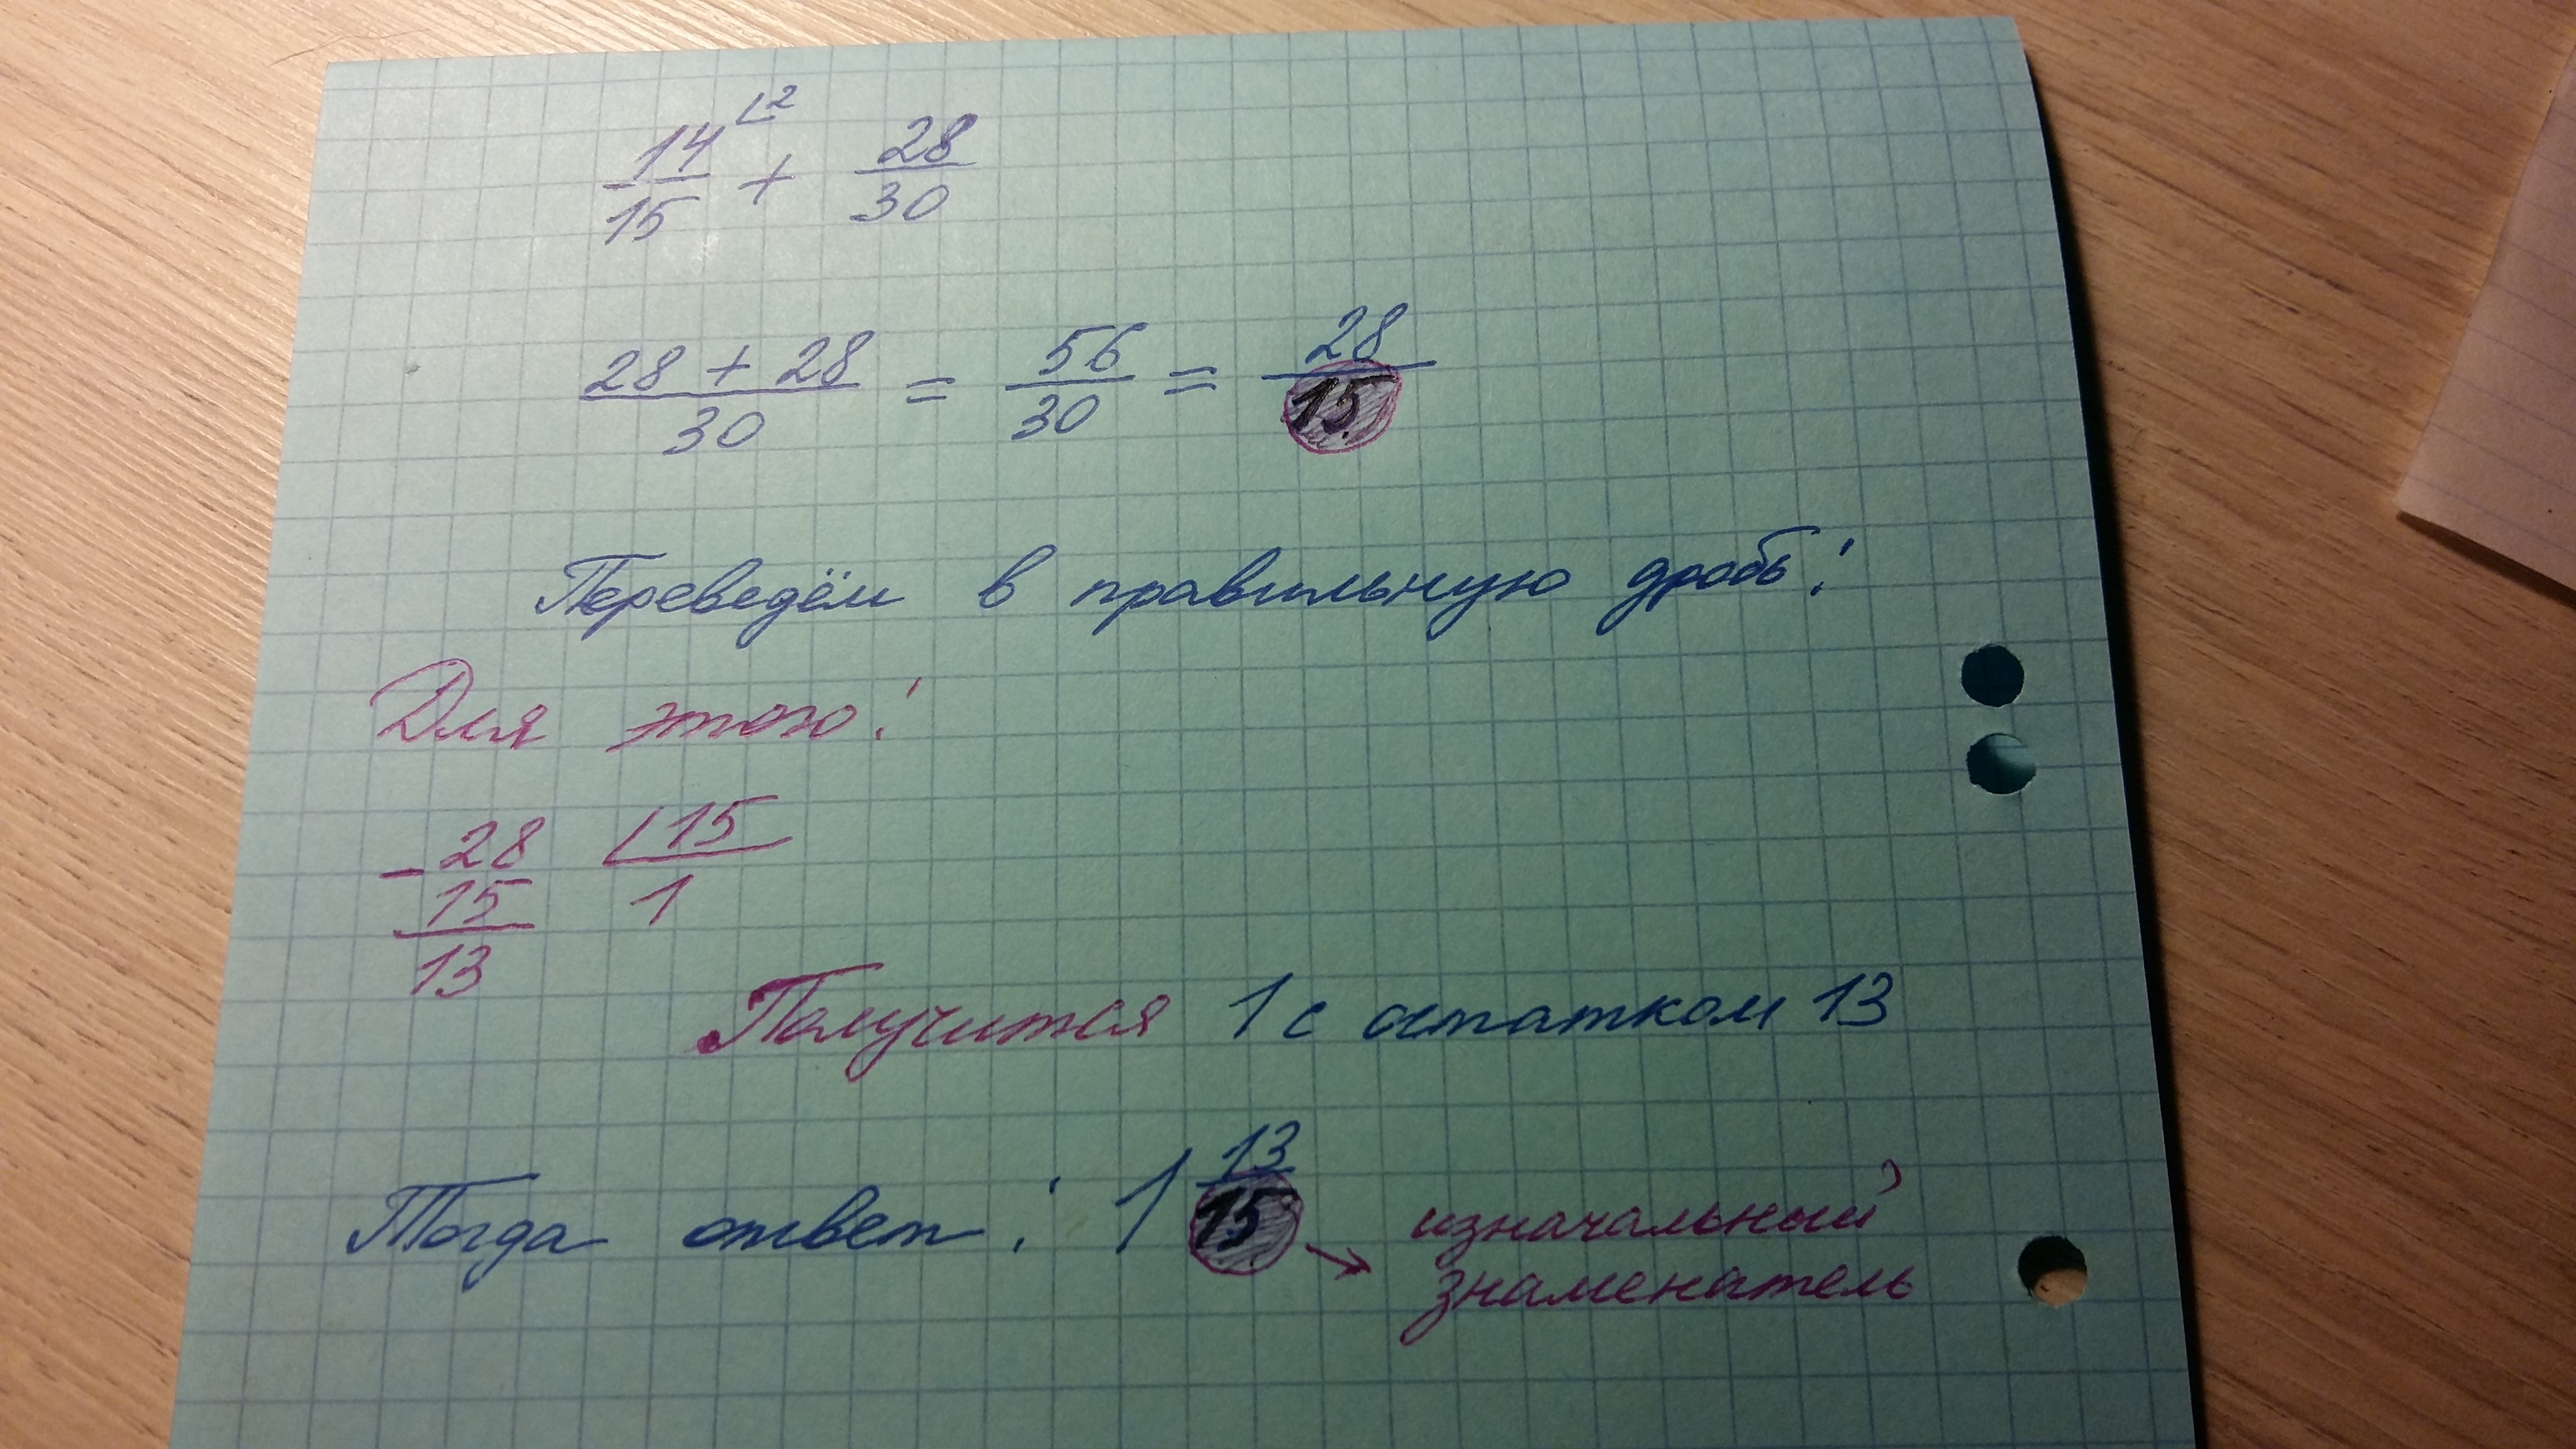 14/15 ∟2 + 28/30
28 + 28/30 = 56/30 = 28/15
Переведём в правильную дробь:
Для этого:
- 28 ∟15
15 1
13
Получится 1 с остатком 13
Тогда ответ: 1 13/15 → изначальный
знаменатель